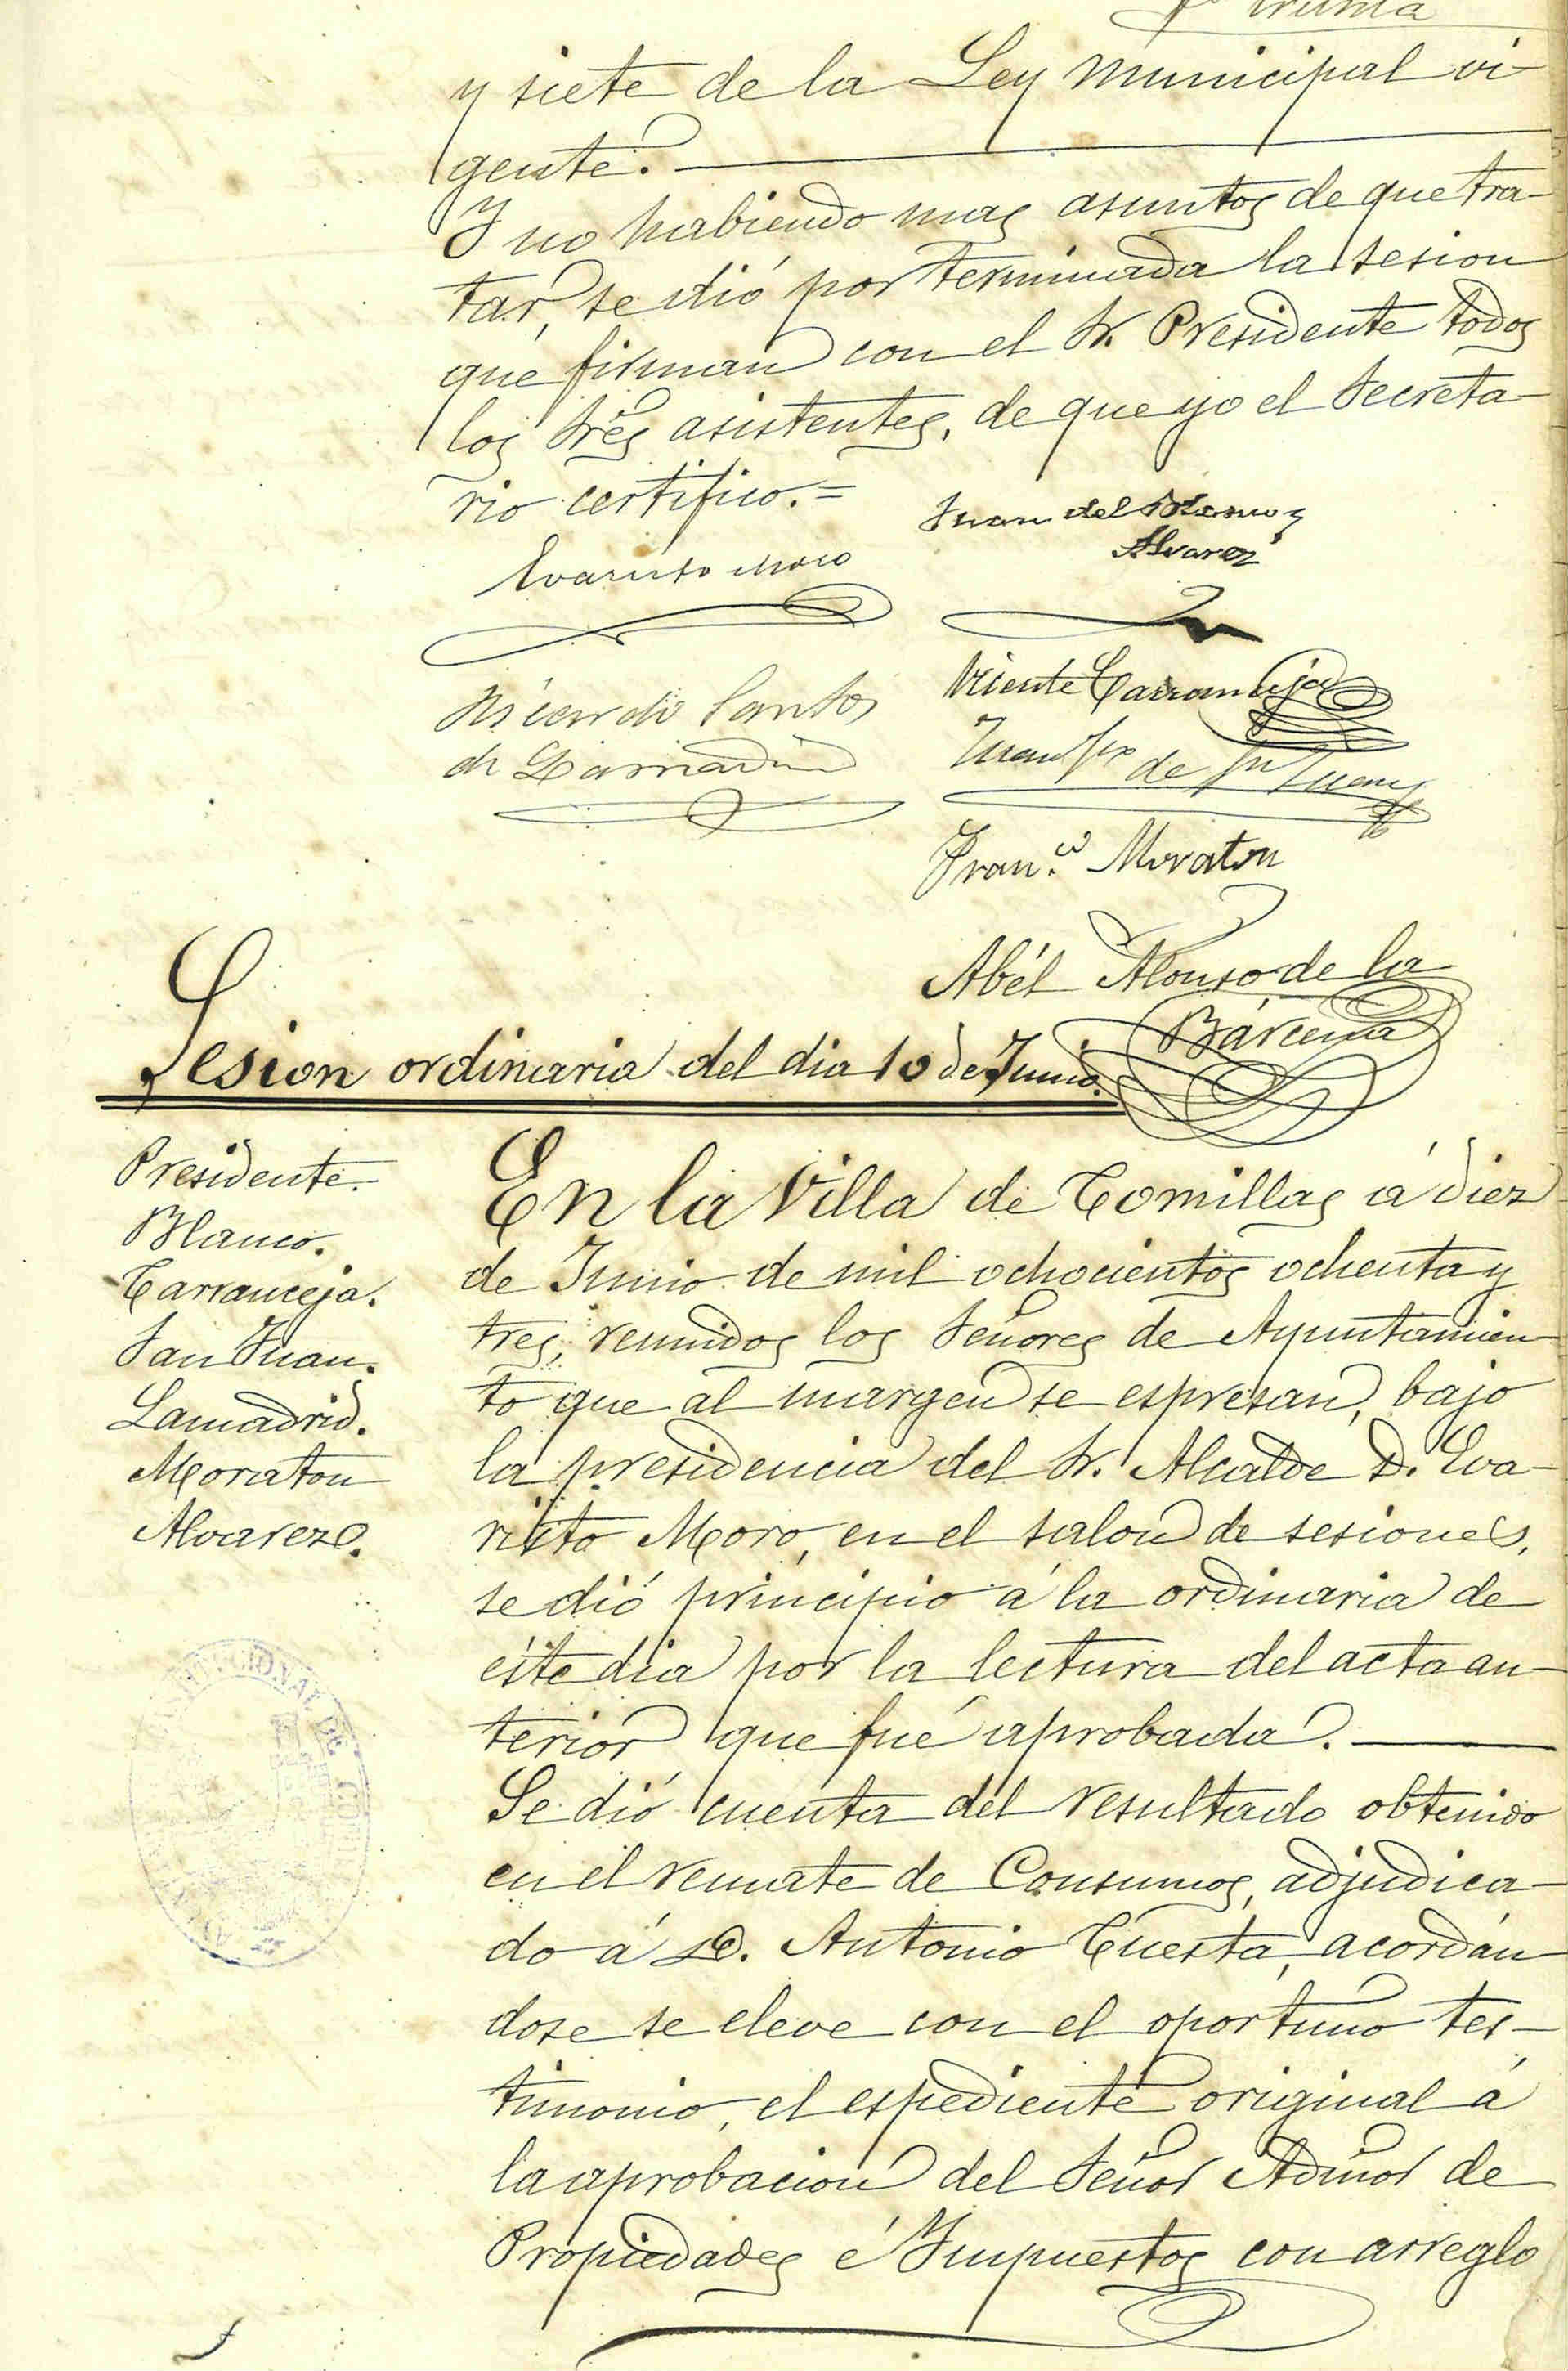 treinta
y siete de la Ley Municipal vi-
gente.
Y no habiendo mas asuntos de que tra-
tar, se dió por terminada la sesion
que firman con el Sr. Presidente todos
los Sres asistentes, de que yo el Secreta-
rio certifico.=
Evaristo Moro
Juan del Blanco y
Alvarez
Vicente Carranceja
Ricardo Santos
de Lamadrid
de Sn Juan
Franco Moraton
Abél Alonso de la
Bárcena
Sesion ordinaria del dia 10 de Junio.
Presidente.
Blanco.
Carranceja.
San Juan.
Lamadrid.
Moraton
Alvarez.
En la Villa de Comillas á diez
de Junio de mil ochocientos ochenta y
tres, reunidos los Señores de Ayuntamien-
to que al margen se espresan, bajo
la presidencia del Sr. Alcalde D. Eva-
risto Moro, en el salon de sesiones,
se dió principio á la ordinaria de
éste dia por la lectura del acta an-
terior que fué aprobada.
Se dió cuenta del resultado obtenido
en el remate de Consumos, adjudica-
do á D. Antonio Cuesta, acordán-
dose se eleve con el oportuno tes-
timonio, el espediente original á
la aprobacion del Señor Admor de
Propiedades é Impuestos con arreglo